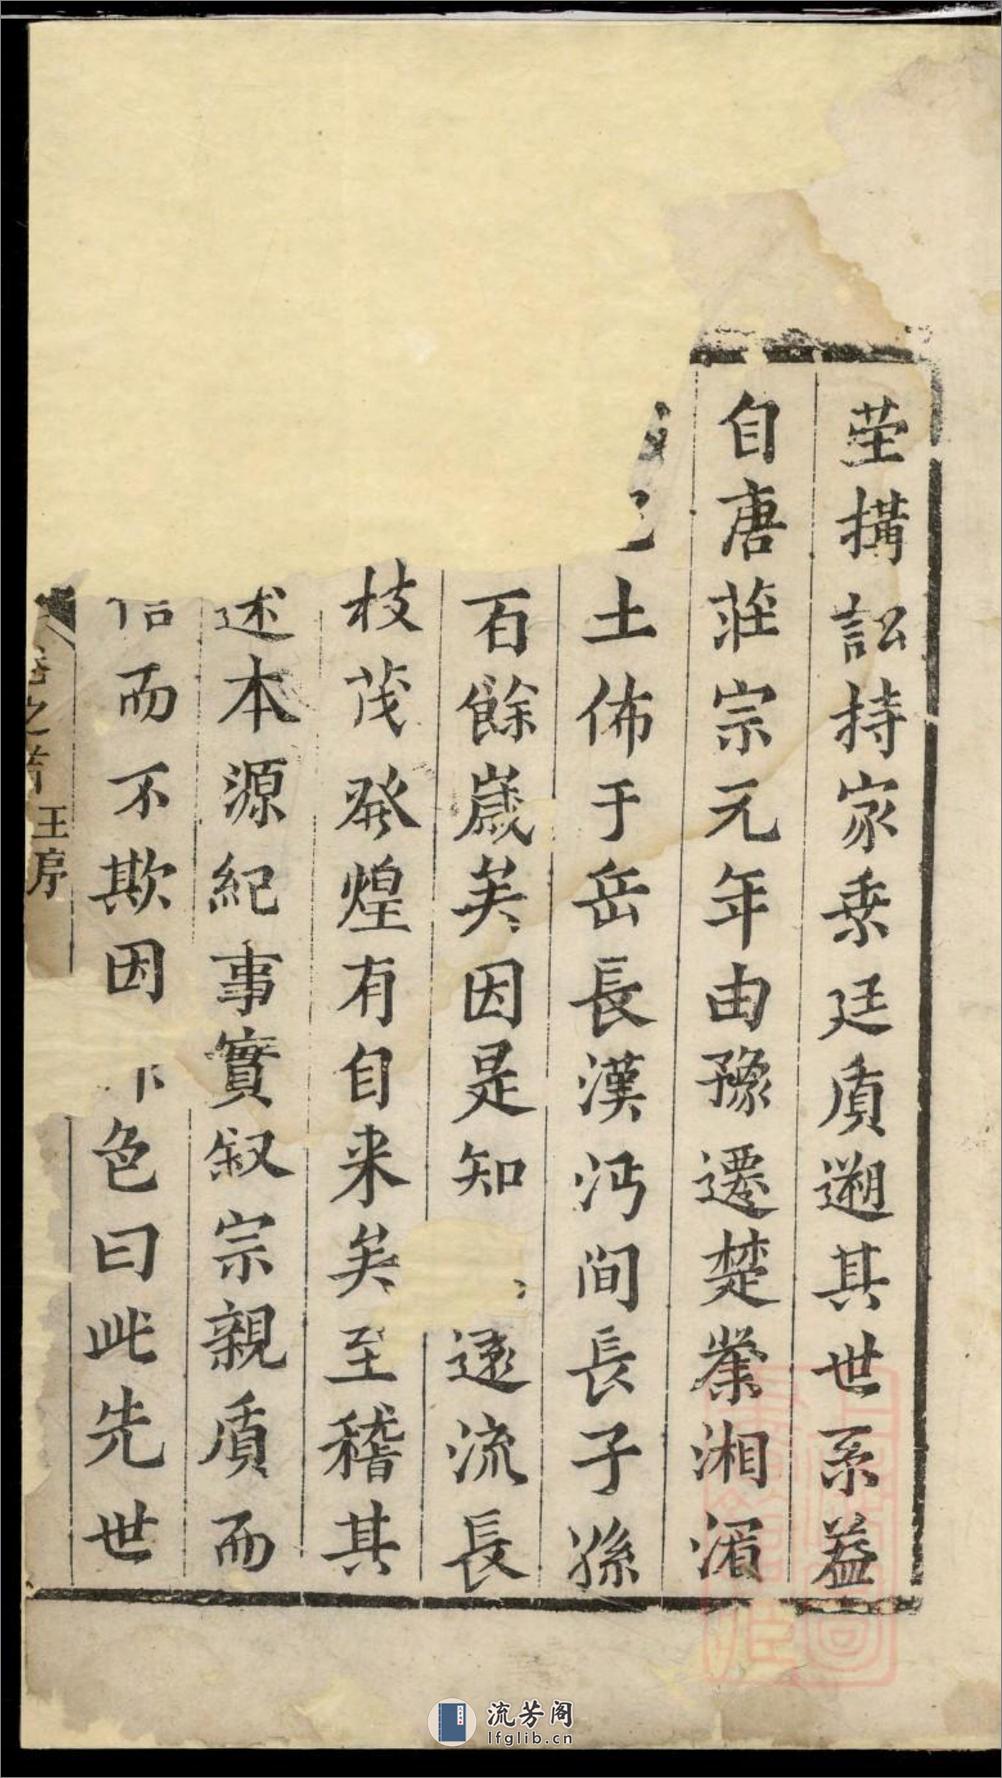 塋搆訟持家乗廷質遡其世系葢
自唐莊宗元年由豫遷楚業湘湄
土佈于岳長漢沔間長子孫
百餘歲矣因是知遠流長
枝茂發煌有自来矣至稽其
述本源紀事實叙宗親質而
信而不欺因色曰此先世
卷之首
王序
流芳阁
lfglib.cn